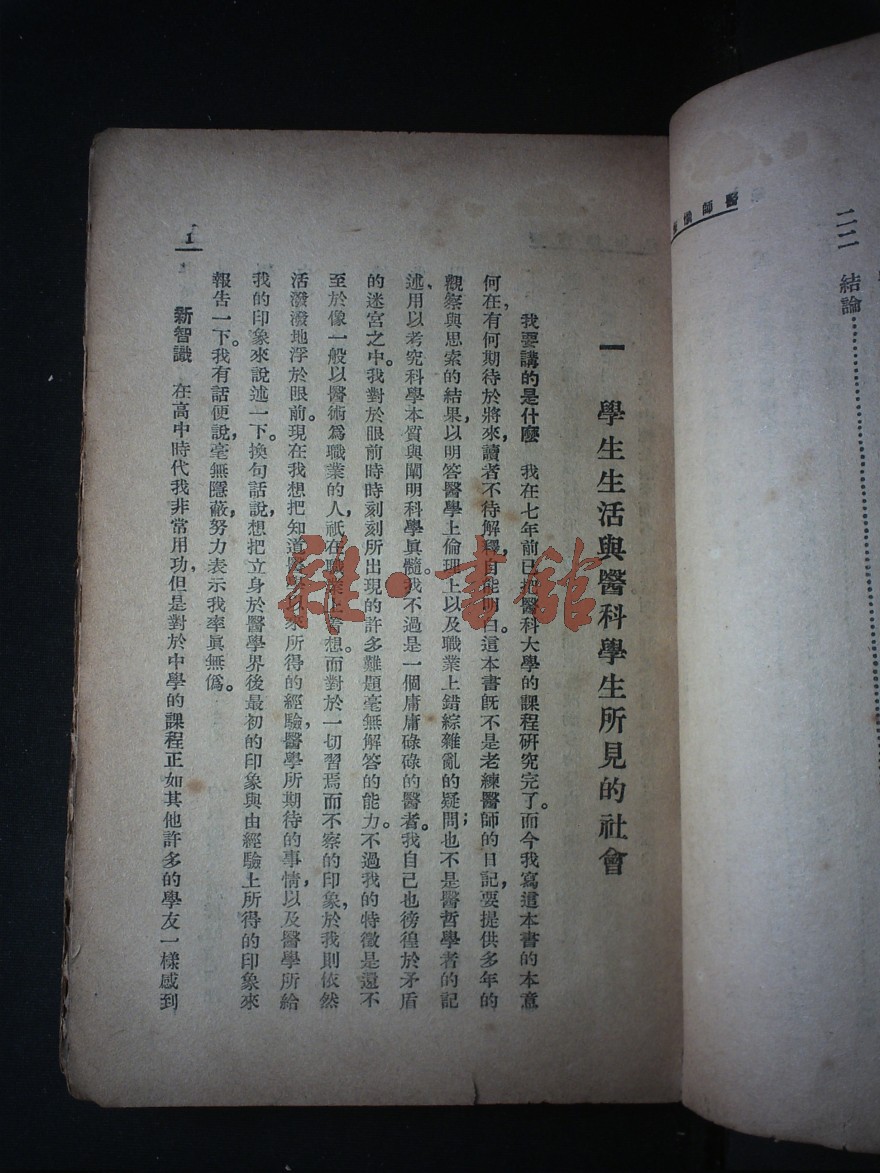 醫師懺
二二 結論
一 學生生活與醫科學生所見的社會
我要講的是什麼 我在七年前已把醫科大學的課程研究完了。而今我寫這本書的本意
何在,有何期待於將來,讀者不待解釋,自能明白。這本書旣不是老練醫師的日記,要提供多年的
觀察與思索的結果,以明答醫學上倫理上以及職業上錯綜雜亂的疑問;也不是醫哲學者的記
述,用以考究科學本質與闡明科學眞髓。我不過是一個庸庸碌碌的醫者。我自己也徬徨於矛盾
的迷宮之中。我對於眼前時時刻刻所出現的許多難題毫無解答的能力。不過我的特徵是還不
至於像一般以醫術爲職業的人,祇在職業上着想。而對於一切習焉而不察的印象,於我則依然
活潑潑地浮於眼前。現在我想把知道醫學以來所得的經驗,醫學所期待的事情,以及醫學所給
我的印象來說述一下。換句話說,想把立身於醫學界後最初的印象與由經驗上所得的印象來
報告一下。我有話便說,毫無隱蔽,努力表示我率眞無僞。
新智識 在高中時代我非常用功,但是對於中學的課程正如其他許多的學友一樣感到
1
雜·書館